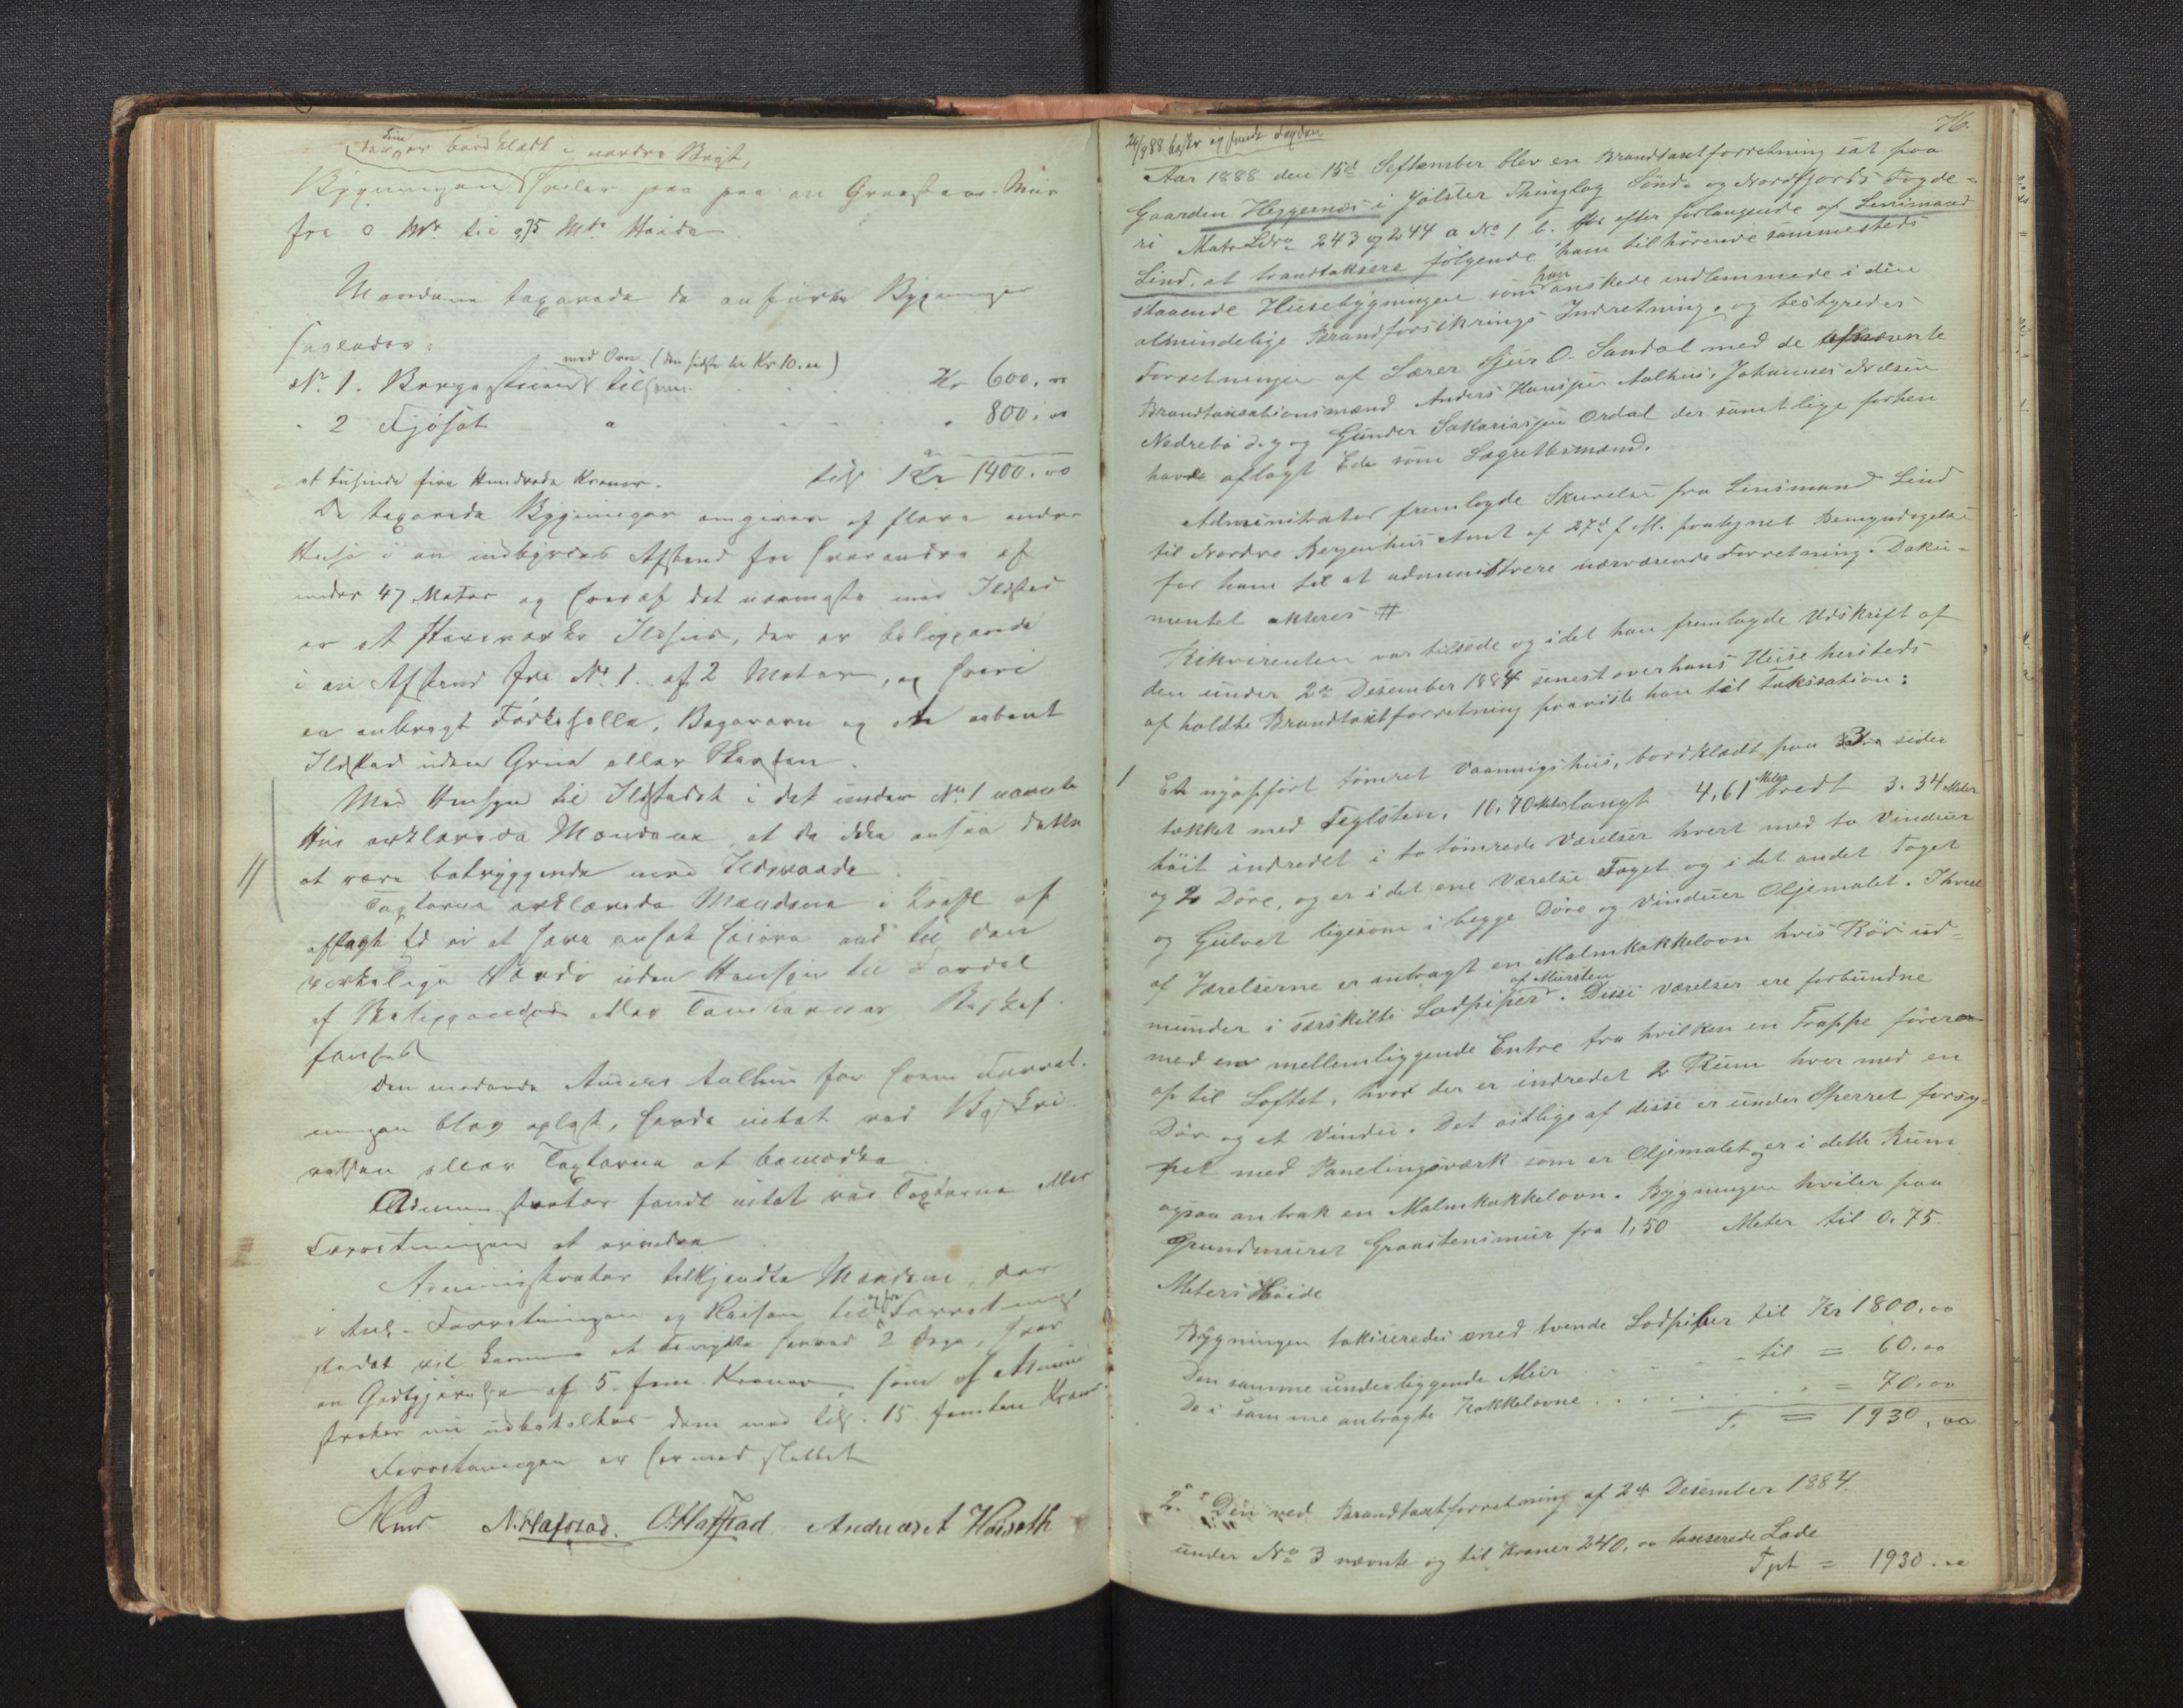 er bordklædt i nordre Bryst,
Bygningen hviler paa en Graastens Muur
fra 0 Mtr til 0,75 Mtr Høide
Mændene taxerede de anførte Bygninger
saaledes:
med Ovn (den sidste til Kr 10.00)
No 1. Borgestuen tilsam Kr 600.00
" 2 Fjøset " " 800.00
et tusinde fire Hundrede Kroner. tils Kr 1400.00
De taxerede Bygninger omgives af flere andre
Huse i en indbyrdes Afstand fra hverandre af
under 47 Meter og hvoraf det nærmeste med Ildsted
er et Ildhus, der er beliggende
i en Afstand fra No 1. af 2 Meter, og hvori
er anbragt Bagerovn og et aabent
Ildsted uden Grue eller Skorsten.
Med Hensyn til Ildstedet i det under No 1 nævnte
Hus erklærede Mændene, at de ikke ansaa dette
at være betryggende mod Ildsvaade.
Taxterne erklærede Mændene i Kraft af
aflagt Ed ei at være ansat høiere end til den
virkelige Værdi uden Hensyn til Fordel
af Beliggenhed eller Tomternes Beskaf-
fenhed
Den mødende Anders Aalhus for hvem Forret-
ningen blev oplæst, havde intet ved Beskri-
velsen eller Taxterne at bemærke.
Administrator fandt intet ved Taxterne eller
Forretningen at erindre.
Administrator tilkjendte Mændene, der
i Anl. Forretningen og Reisen til og fra Forretnings-
stedet vil komme at benytte herved 2 Dage, hver
en Godtgjørelse af 5. fem Kroner, som af Admini-
strator nu udbetaltes dem med tils. 15 femten Kroner.
Forretningen er hermed sluttet
N. Hafstad. O. Hafstad Andreas A
76.
26/9 88
Aar 1888 den 15de September blev en Brandtaxtforretning sat paa
Gaarden Heggenæs i Jølster Thinglag Sønd- og Nordfjords Fogde-
ri Matr. Løbno 243 og 244 a No 1 b. efter forlangende af Lensmand
Lind, at brandtaksere følgende ham tilhørende sammesteds
staaende Husebygninger som han ønskede indlemmede i den
almindelige Brandforsikrings Indretning, og bestyredes
Forretningen af Lærer Sjur O. Sandal med de opnævnte
Brandtaxationsmænd Anders Hansen Aalhus, Johannes Nilsen
Nedrebø d. y og Gunder Sakariasen Ordal der samtlige forhen
havde aflagt Ed som Lagrettesmænd.
Administrator fremlagde Skrivelse fra Lensmand Lind
til Nordre Bergenhus Amt af 27de f. M. paategnet Bemyndigelse
for ham til at administrere nærværende Forretning. Doku-
mentet akteres #
Rekvirenten var tilstede og idet han fremlagde Udskrift af
den under 2de Desember 1884 senest over hans Huse hersteds
afholdte Brandtaxtforretning paaviste han til taksation:
1 Et nyopført tømret Vaaningshus, bordklædt paa 3 sider
tækket med Teglsten, 10,70 Meter langt 4,61 Meter bredt 3.34 Meter
høit indredet i to tømrede Værelser hvert med to Vinduer
og 2 Døre, og er i det ene Værelse Taget og i det andet Taget
og Gulvet ligesom i begge Døre og Vinduer Oljemalet. I hvert
af Værelserne er anbragt en Malmkakkelovn hvis Rør ud-
munder i særskilte Lodpiper af Mursten. Disse Værelser ere forbundne
med en mellemliggende Entre fra hvilken en Trappe fører
op til Loftet, hvor der er indredet 2 Rum hver med en
Dør og et Vindu. Det østlige af disse er under Sperret forsy-
net med Panelingsværk som er Oljemalet og er i dette Rum
ogsaa anbrak en Malmkakkelovn. Bygningen hviler paa
grundmuret Graastensmur fra 1,50 Meter til 0.75
Meters Høide
Bygningen takseredes med tvende Lodpiper til Kr 1800.00
Den samme underliggende Mur . . . til = 60.00
De i samme anbragte Kakkelovne . . . . = 70.00
T. = 1930,00
2. Den ved Brandtaxtforretning af 2de Desember 1884
under No 3 nævnte og til Kroner 240.00 takserede Lade
Tpt = 1930.00